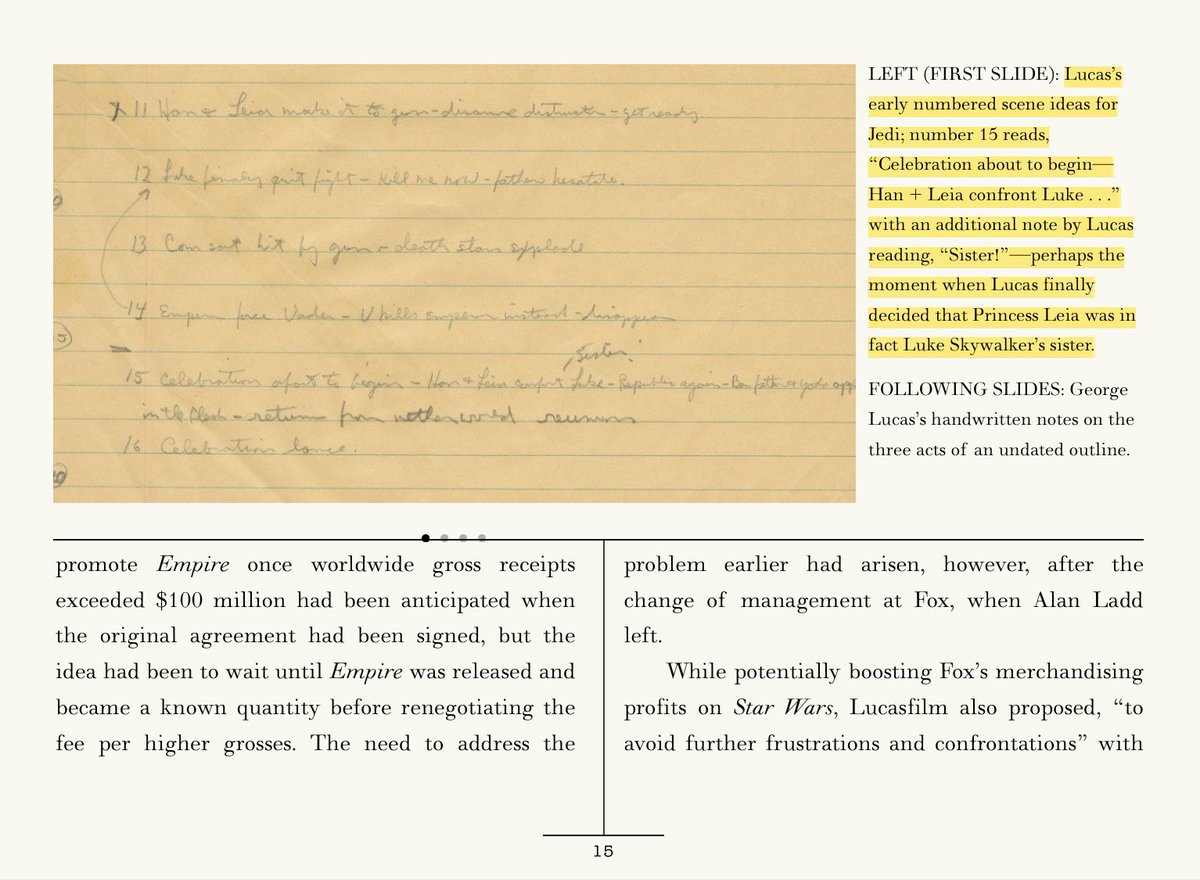 11 Han & Leia make it to gun - disarms distructer - get ready.
12 Luke finally quit fight - kill me now - father hesitate.
13 Com sat hit by gun - death stars explode
14 Emperor force Vader - V kills emperor instead - disappear
Sister!
15 Celebration about to begin - Han & Leia confront Luke - Republic again - Ben father & Yoda
in the flesh - return from netherworld reunion
16 Celebration
LEFT (FIRST SLIDE): Lucas’s
early numbered scene ideas for
Jedi; number 15 reads,
“Celebration about to begin—
Han + Leia confront Luke . . .”
with an additional note by Lucas
reading, “Sister!”—perhaps the
moment when Lucas finally
decided that Princess Leia was in
fact Luke Skywalker’s sister.
FOLLOWING SLIDES: George
Lucas’s handwritten notes on the
three acts of an undated outline.
promote Empire once worldwide gross receipts
exceeded $100 million had been anticipated when
the original agreement had been signed, but the
idea had been to wait until Empire was released and
became a known quantity before renegotiating the
fee per higher grosses. The need to address the
problem earlier had arisen, however, after the
change of management at Fox, when Alan Ladd
left.
While potentially boosting Fox’s merchandising
profits on Star Wars, Lucasfilm also proposed, “to
avoid further frustrations and confrontations” with
15